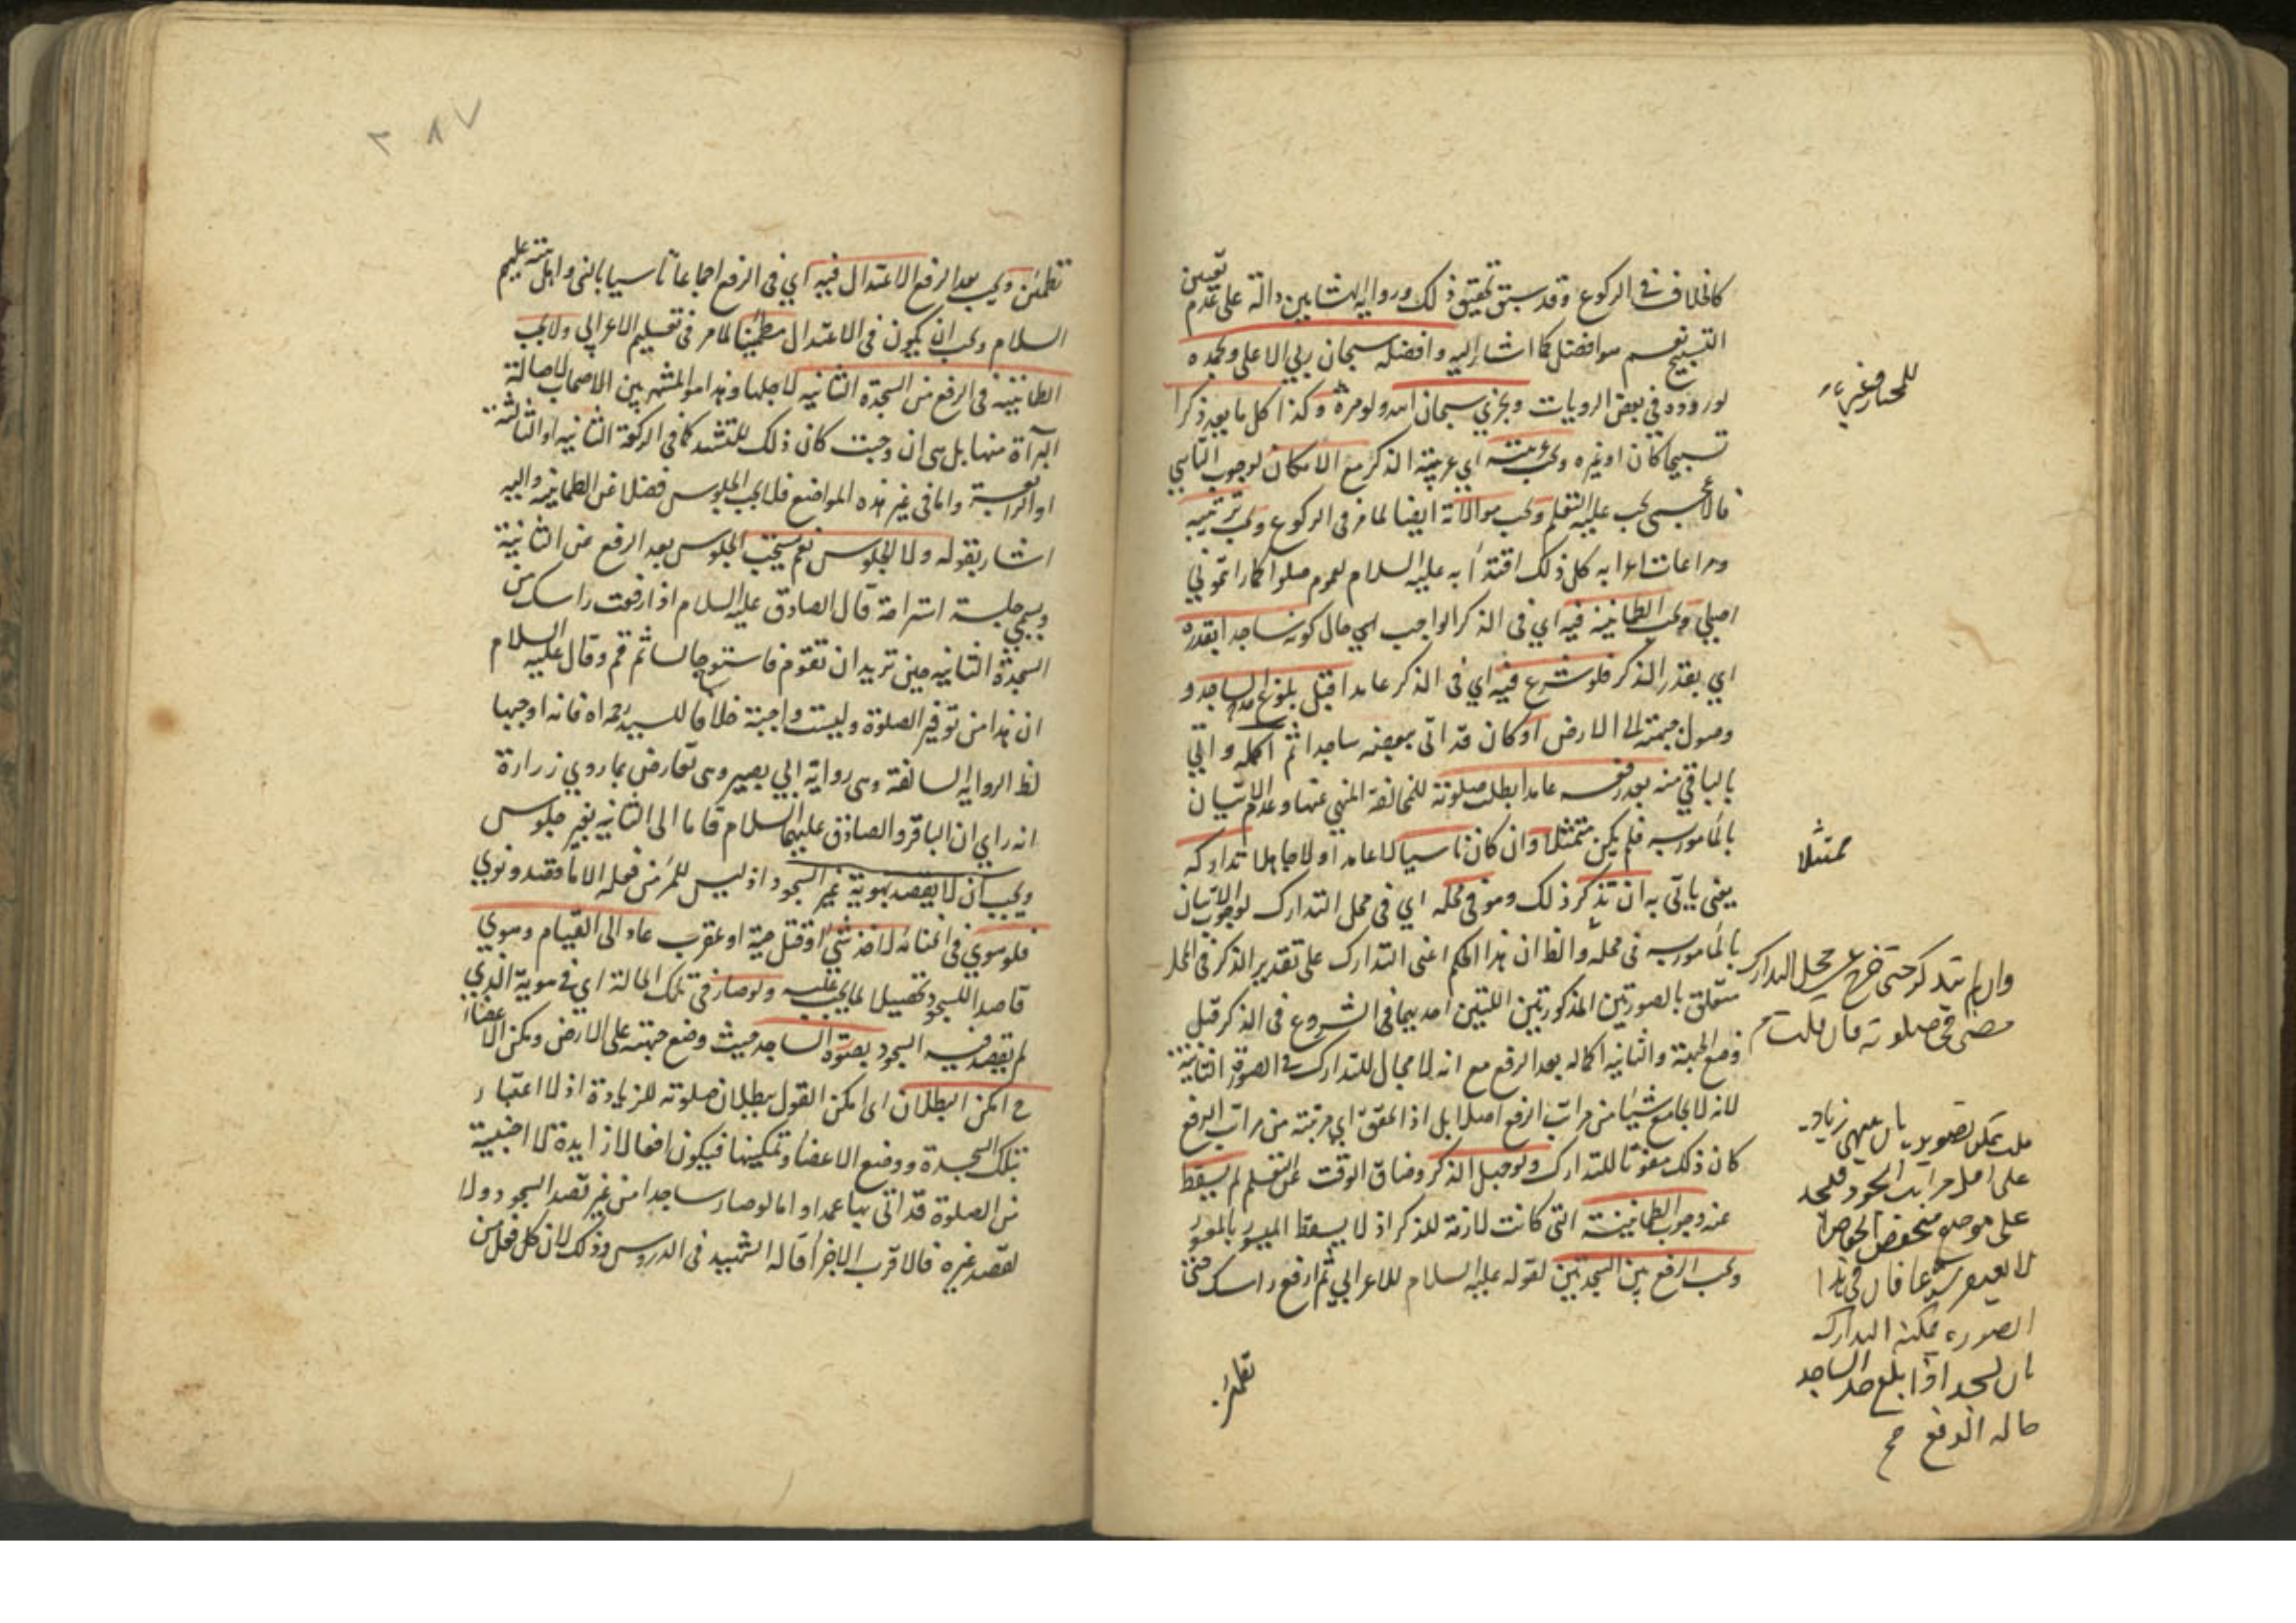 كالخلاف في الركوع وقد سبق تحقيق ذلك ورواية الهشامين دالة على عدم تعيين
التسبيح نعم هو افضل كما اشار اليه وافضله سبحان ربي الاعلى وبحمده
لوروده في بعض الروايات ويجزي سبحان الله ولو مرة وكذا كل ما يعد ذكرا
تسبيحا كان او غيره ويجب عربيته اي عربية الذكر مع الامكان لوجوب التاسي
فالاعجمي يجب عليه التعلم ويجب موالاته ايضا لما مر في الركوع ويجب ترتيبه
ومراعات اعرابه كل ذلك اقتداً به عليه السلام لعموم صلوا كما رايتموني
اصلي ويجب الطمانينة فيه اي في الذكر الواجب اي حال كونه ساجدا بقدره
اي بقدر الذكر فلو شرع فيه اي في الذكر عامدا قبل بلوغ حد الساجد و
وصول جبهته الى الارض او كان قد اتى ببعضه ساجدا ثم اكمله واتي
بالباقي منه بعد رفعه عامدا بطلت صلوته للمخالفة المنهي عنها وعدم الاتيان
بالمامور به فلم يكن متمثلا وان كان ناسيا لا عامدا ولا جاهلا تداركه
يعني ياتي به ان تذكر ذلك وهو في محله اي في محل التدارك لوجوب الاتيان
بالمامور به في محله والظ ان هذا الحكم اعنى التدارك على تقدير الذكر في المحل
متعلق بالصورتين المذكورتين اللتين احديهما في الشروع في الذكر قبل
وضع الجبهة والثانية اكماله بعد الرفع مع انه لا مجال للتدارك في الصورة الثانية
لانه لا يجامع شيئا من مراتب الرفع اصلا بل اذا تحقق اي مرتبة من مراتب الرفع
كان ذلك مفوتا للتدارك ولو جهل الذكر وضاق الوقت عن التعلم لم يسقط
عنه وجوب الطمانينة التي كانت لازمة للذكر اذ لا يسقط الميسور بالمعسور
ويجب الرفع بين السجدتين لقوله عليه السلام للاعرابي ثم ارفع راسك حتى
تطمئن
للمختار وغيره
ممتثلا
وان لم يتذكر حتى خرج عن محل التدارك
مضى في صلوته
قلت يمكن تصويره
على موضع منخفض
الصورة يمكنه التدارك
بان يسجد اذا بلغ حد الساجد
حالة الرفع
٢٨٧
تطمئن ويجب بعد الرفع الاعتدال فيه اي في الرفع اجماعا تاسيا بالنبي واهل بيته عليهم
السلام ويجب ان يكون في الاعتدال مطمئنا لما مر في تعليم الاعرابي ولا يجب
الطمانينة في الرفع من السجدة الثانية لاجلها وهذا هو المشهور بين الاصحاب لاصالة
البرآة منها بل هي ان وجبت كان ذلك للتشهد كما في الركعة الثانية او الثالثة
او الرابعة واما في غير هذه المواضع فلا يجب الجلوس فضلا عن الطمانينة واليه
اشار بقوله ولا الجلوس نعم يستحب الجلوس بعد الرفع من الثانية
ويسمى جلسة استراحة قال الصادق عليه السلام اذا رفعت راسك من
السجدة الثانية حين تريد ان تقوم فاستو جالسا ثم قم وقال عليه السلام
ان هذا من توقير الصلوة وليست واجبة خلافا للسيد رحمه الله فانه اوجبها
لظ الرواية السالفة وهي رواية ابي بصير وهي تعارض بما روي زرارة
انه راي ان الباقر والصادق عليهما السلام قاما الى الثانية بغير جلوس
ويجب ان لا يقصد بهوية غير السجود اذ ليس للمرء من فعله الا ما قصد ونوي
فلو هوي في اثنائه لاخذ شيء او قتل حية او عقرب عاد الى القيام وهوي
قاصدا للسجود تحصيلا لما يجب عليه ولو صار في تلك الحالة اي في هوية الذي
لم يقصد فيه السجود بصورة الساجد بحيث وضع جبهته على الارض ومكن الاعضاء
ح امكن البطلان اى امكن القول ببطلان صلوته للزيادة اذ لا اعتبار
بتلك السجدة ووضع الاعضا وتمكينها فيكون افعالا زايدة لا اجنبية
من الصلوة قد اتى بها عمدا واما لو صار ساجدا من غير قصد السجود ولا
لقصد غيره فالاقرب الاجزا قاله الشهيد في الدروس وذلك لان كل فعل من